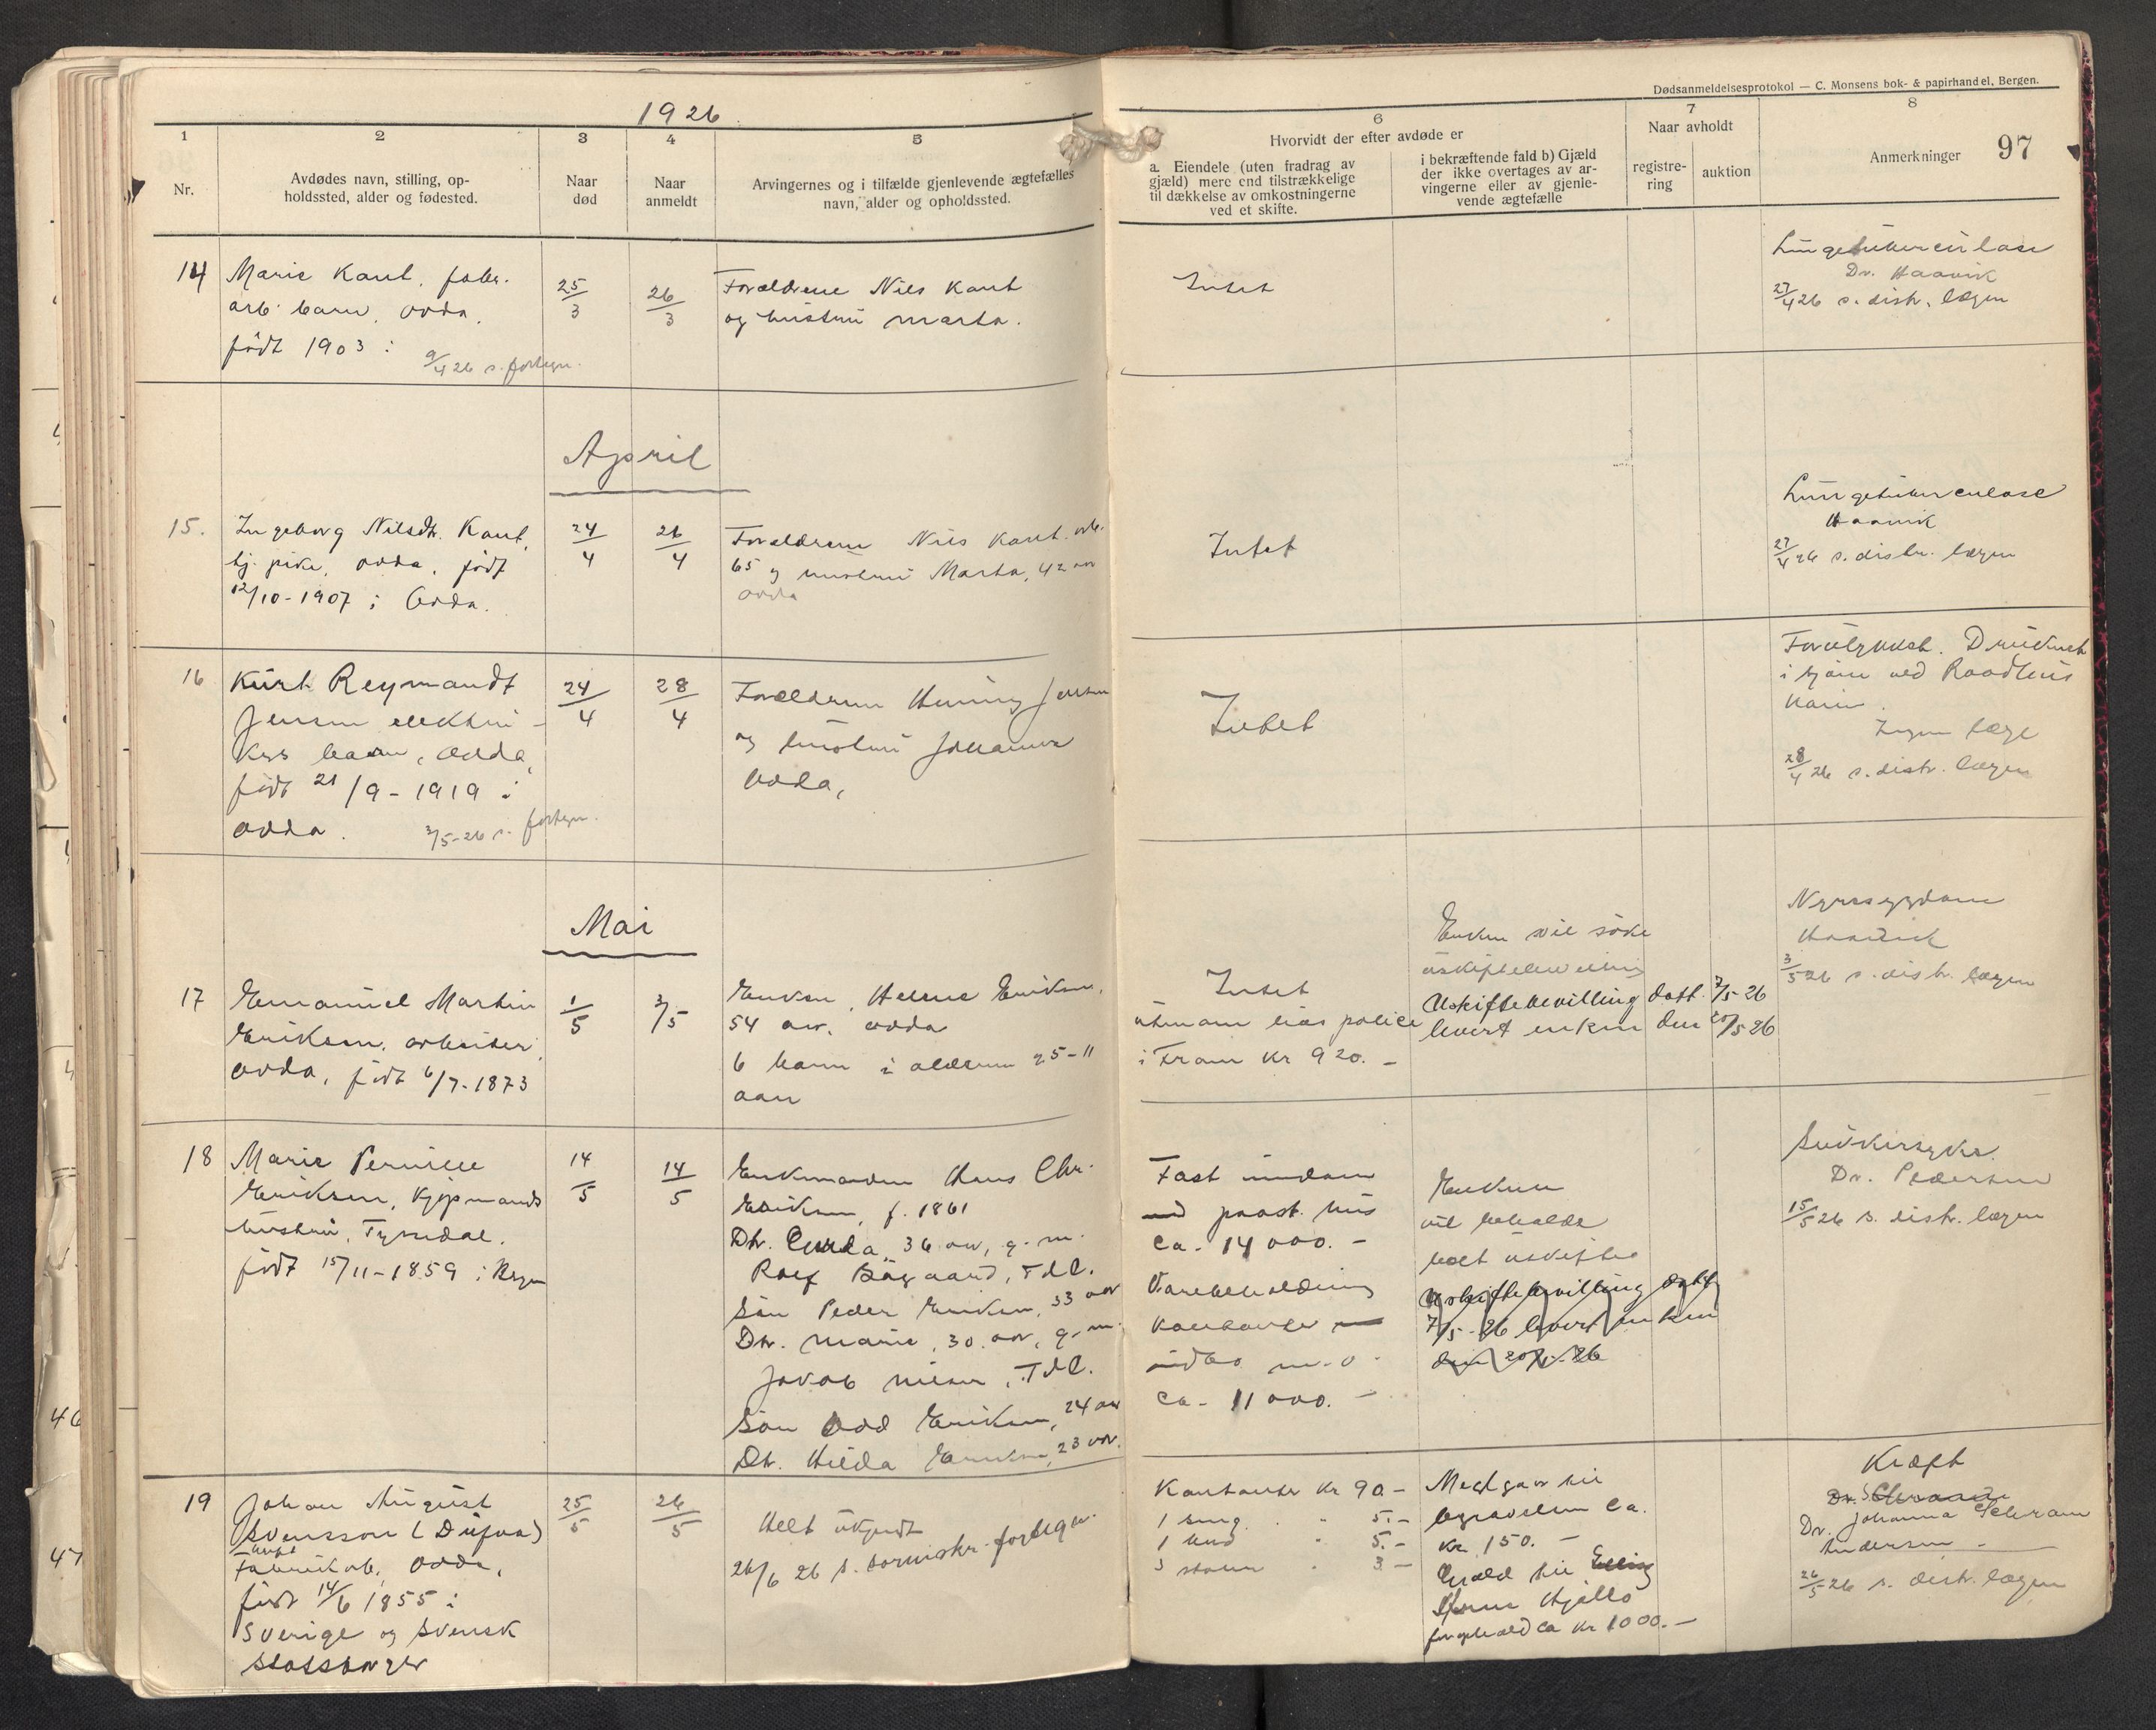 1926
Dødsanmeldelsesprotokol — C. Monsens bok- & papirhandel, Bergen.
97
1
2
3
4
5
6
7
8
Nr.
Avdødes navn, stilling, op-
holdssted, alder og fødested.
Naar
død
Naar
anmeldt
Arvingernes og i tilfælde gjenlevende ægtefælles
navn, alder og opholdssted.
Hvorvidt der efter avdøde er
a. Eiendele (uten fradrag av
gjæld) mere end tilstrækkelige
til dækkelse av omkostningerne
ved et skifte.
i bekræftende fald b) Gjæld
der ikke overtages av ar-
vingerne eller av gjenle-
vende ægtefælle
Naar avholdt
registre-
ring
auktion
Anmerkninger
14
Marie Kant, fabr.
arb. barn, Odda,
født 1903 i
9/4 26 s. fortegn.
25/3
26/3
Forældrene Nils Kant
og hustru Marta.
Intet
Lungetuberculose
Dr. Haavik
27/4 26 s. distr. lægen
April
15.
Ingeborg Nilsdtr. Kant,
tj. pike, Odda, født
12/10-1907 i Odda.
24/4
26/4
Forældrene Nils Kant, arb.
65 og hustru Marta, 42 aar
Odda
Intet
Lungetuberculose
Haavik
27/4 26 s. distr. lægen
16
Kurt Reymandt
Jensen elektri-
kers barn, Odda,
født 21/9-1919 i
Odda.
3/5-26 s. fortegn.
24/4
28/4
Forældrene Henning Jensen
og hustru Johanna
Odda,
Intet
Forulykket. Druknet
i sjøen ved Raadhus
kaien.
Ingen læge
28/4 26 s. distr. lægen
Mai
17
Emanuel Martin
Eriksen, arbeider,
Odda, født 6/7-1873
1/5
3/5
Enken, Helene Eriksen,
54 aar, Odda
6 barn i alderen 25-11
aar
Intet
utenom livs police
i Fram kr 920.-
Enken vil søke
uskiftebevilling
Uskiftebevilling datt. 7/5-26
levert enken den 20/5 26
Nyresygdom
Haavik
3/5 26 s. distr. lægen
18
Marie Pernille
Eriksen, kjøpmands
hustru, Tyssedal.
født 15/11-1859 i Bergen
14/5
14/5
Enkemanden Hans Chr.
Eriksen, f. 1861
Dtr. 36 aar, g. m.
Rolf Bågaard, Tdl.
Søn Peder Eriksen, 33 aar
Dtr. Marie, 30 aar, g. m.
Jakob Nilsen, Tdl.
Søn Odd Eriksen, 24 aar
Dtr. Hilda Eriksen, 23 aar.
Fast eiendom
med paast. hus
ca. 14 000.-
Varebeholdning
kontanter
indbo m. v.
ca. 11 000.-
Enkem
vil beholde
boet uskiftet
Uskiftebevilling datt.
7/5-26 levert enken
den 20/5-26
Sukkersyke.
Dr. Pedersen
15/5 26 s. distr. lægen
19
Johan August
Svensson (Dufva)
Fabrikarb, Odda,
født 14/6 1855 i
Sverige og svensk
statsborger
25/5
26/5
Helt ukjendt
26/6 26 s. sorenskr. fortegn.
Kontanter kr 90.-
1 seng " 5.-
1 " 5.-
3 stoler " 3-
Medgaar til
begravelsen ca.
kr. 150.-
Gjæld til
Hjøllo
for ophold ca kr 1000.-
Kræft
Dr.
Dr. Johanna Schram
Andersen
26/5 26 s. distr. lægen
46
47